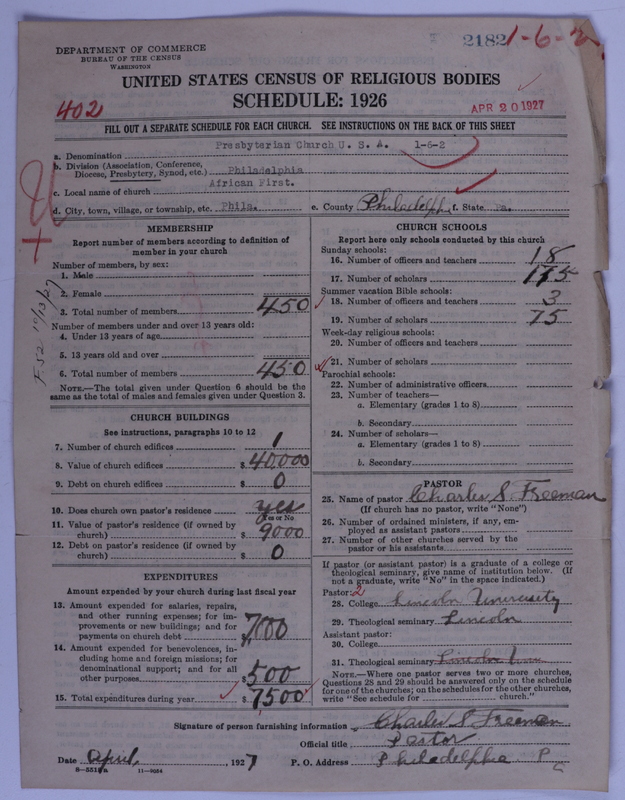 2182
1-6-2
DEPARTMENT OF COMMERCE
BUREAU OF THE CENSUS
WASHINGTON
UNITED STATES CENSUS OF RELIGIOUS BODIES
SCHEDULE: 1926
402
APR 20 1927
FILL OUT A SEPARATE SCHEDULE FOR EACH CHURCH. SEE INSTRUCTIONS ON THE BACK OF THIS SHEET
a. Denomination Presbyterian Church U. S. A. 1-6-2
b. Division (Association, Conference,
Diocese, Presbytery, Synod, etc.) Philadelphia
c. Local name of church African First.
d. City, town, village, or township, etc. Phila. e. County Philadelphia f. State Pa.
MEMBERSHIP
Report number of members according to definition of
member in your church
Number of members, by sex:
1. Male
2. Female
3. Total number of members 450
Number of members under and over 13 years old:
4. Under 13 years of age
5. 13 years old and over
6. Total number of members 450
NOTE.—The total given under Question 6 should be the
same as the total of males and females given under Question 3.
F.S.2 10/13/27
CHURCH BUILDINGS
See instructions, paragraphs 10 to 12
7. Number of church edifices 1
8. Value of church edifices $ 40,000
9. Debt on church edifices $ 0
10. Does church own pastor's residence yes
Yes or No
11. Value of pastor's residence (if owned by
church) $ 9000
12. Debt on pastor's residence (if owned by
church) $ 0
EXPENDITURES
Amount expended by your church during last fiscal year
13. Amount expended for salaries, repairs,
and other running expenses; for im-
provements or new buildings; and for
payments on church debt 7,000
14. Amount expended for benevolences, in-
cluding home and foreign missions; for
denominational support; and for all
other purposes $ 500
15. Total expenditures during year $ 7500
CHURCH SCHOOLS
Report here only schools conducted by this church
Sunday schools:
16. Number of officers and teachers 18
17. Number of scholars 175
Summer vacation Bible schools:
18. Number of officers and teachers 3
19. Number of scholars 75
Week-day religious schools:
20. Number of officers and teachers
21. Number of scholars
Parochial schools:
22. Number of administrative officers
23. Number of teachers—
a. Elementary (grades 1 to 8)
b. Secondary
24. Number of scholars—
a. Elementary (grades 1 to 8)
b. Secondary
PASTOR
25. Name of pastor Charles S. Freeman
(If church has no pastor, write "None")
26. Number of ordained ministers, if any, em-
ployed as assistant pastors
27. Number of other churches served by the
pastor or his assistants
If pastor (or assistant pastor) is a graduate of a college or
theological seminary, give name of institution below. (If
not a graduate, write "No" in the space indicated.)
Pastor: 2
28. College Lincoln University
29. Theological seminary Lincoln
Assistant pastor:
30. College
31. Theological seminary Lincoln Univ
NOTE.—Where one pastor serves two or more churches,
Questions 28 and 29 should be answered only on the schedule
for one of the churches; on the schedules for the other churches,
write "See schedule for church."
Signature of person furnishing information Charles S. Freeman
Official title Pastor
Date April, 1927 P. O. Address Philadelphia P
8-5510a 11-9984